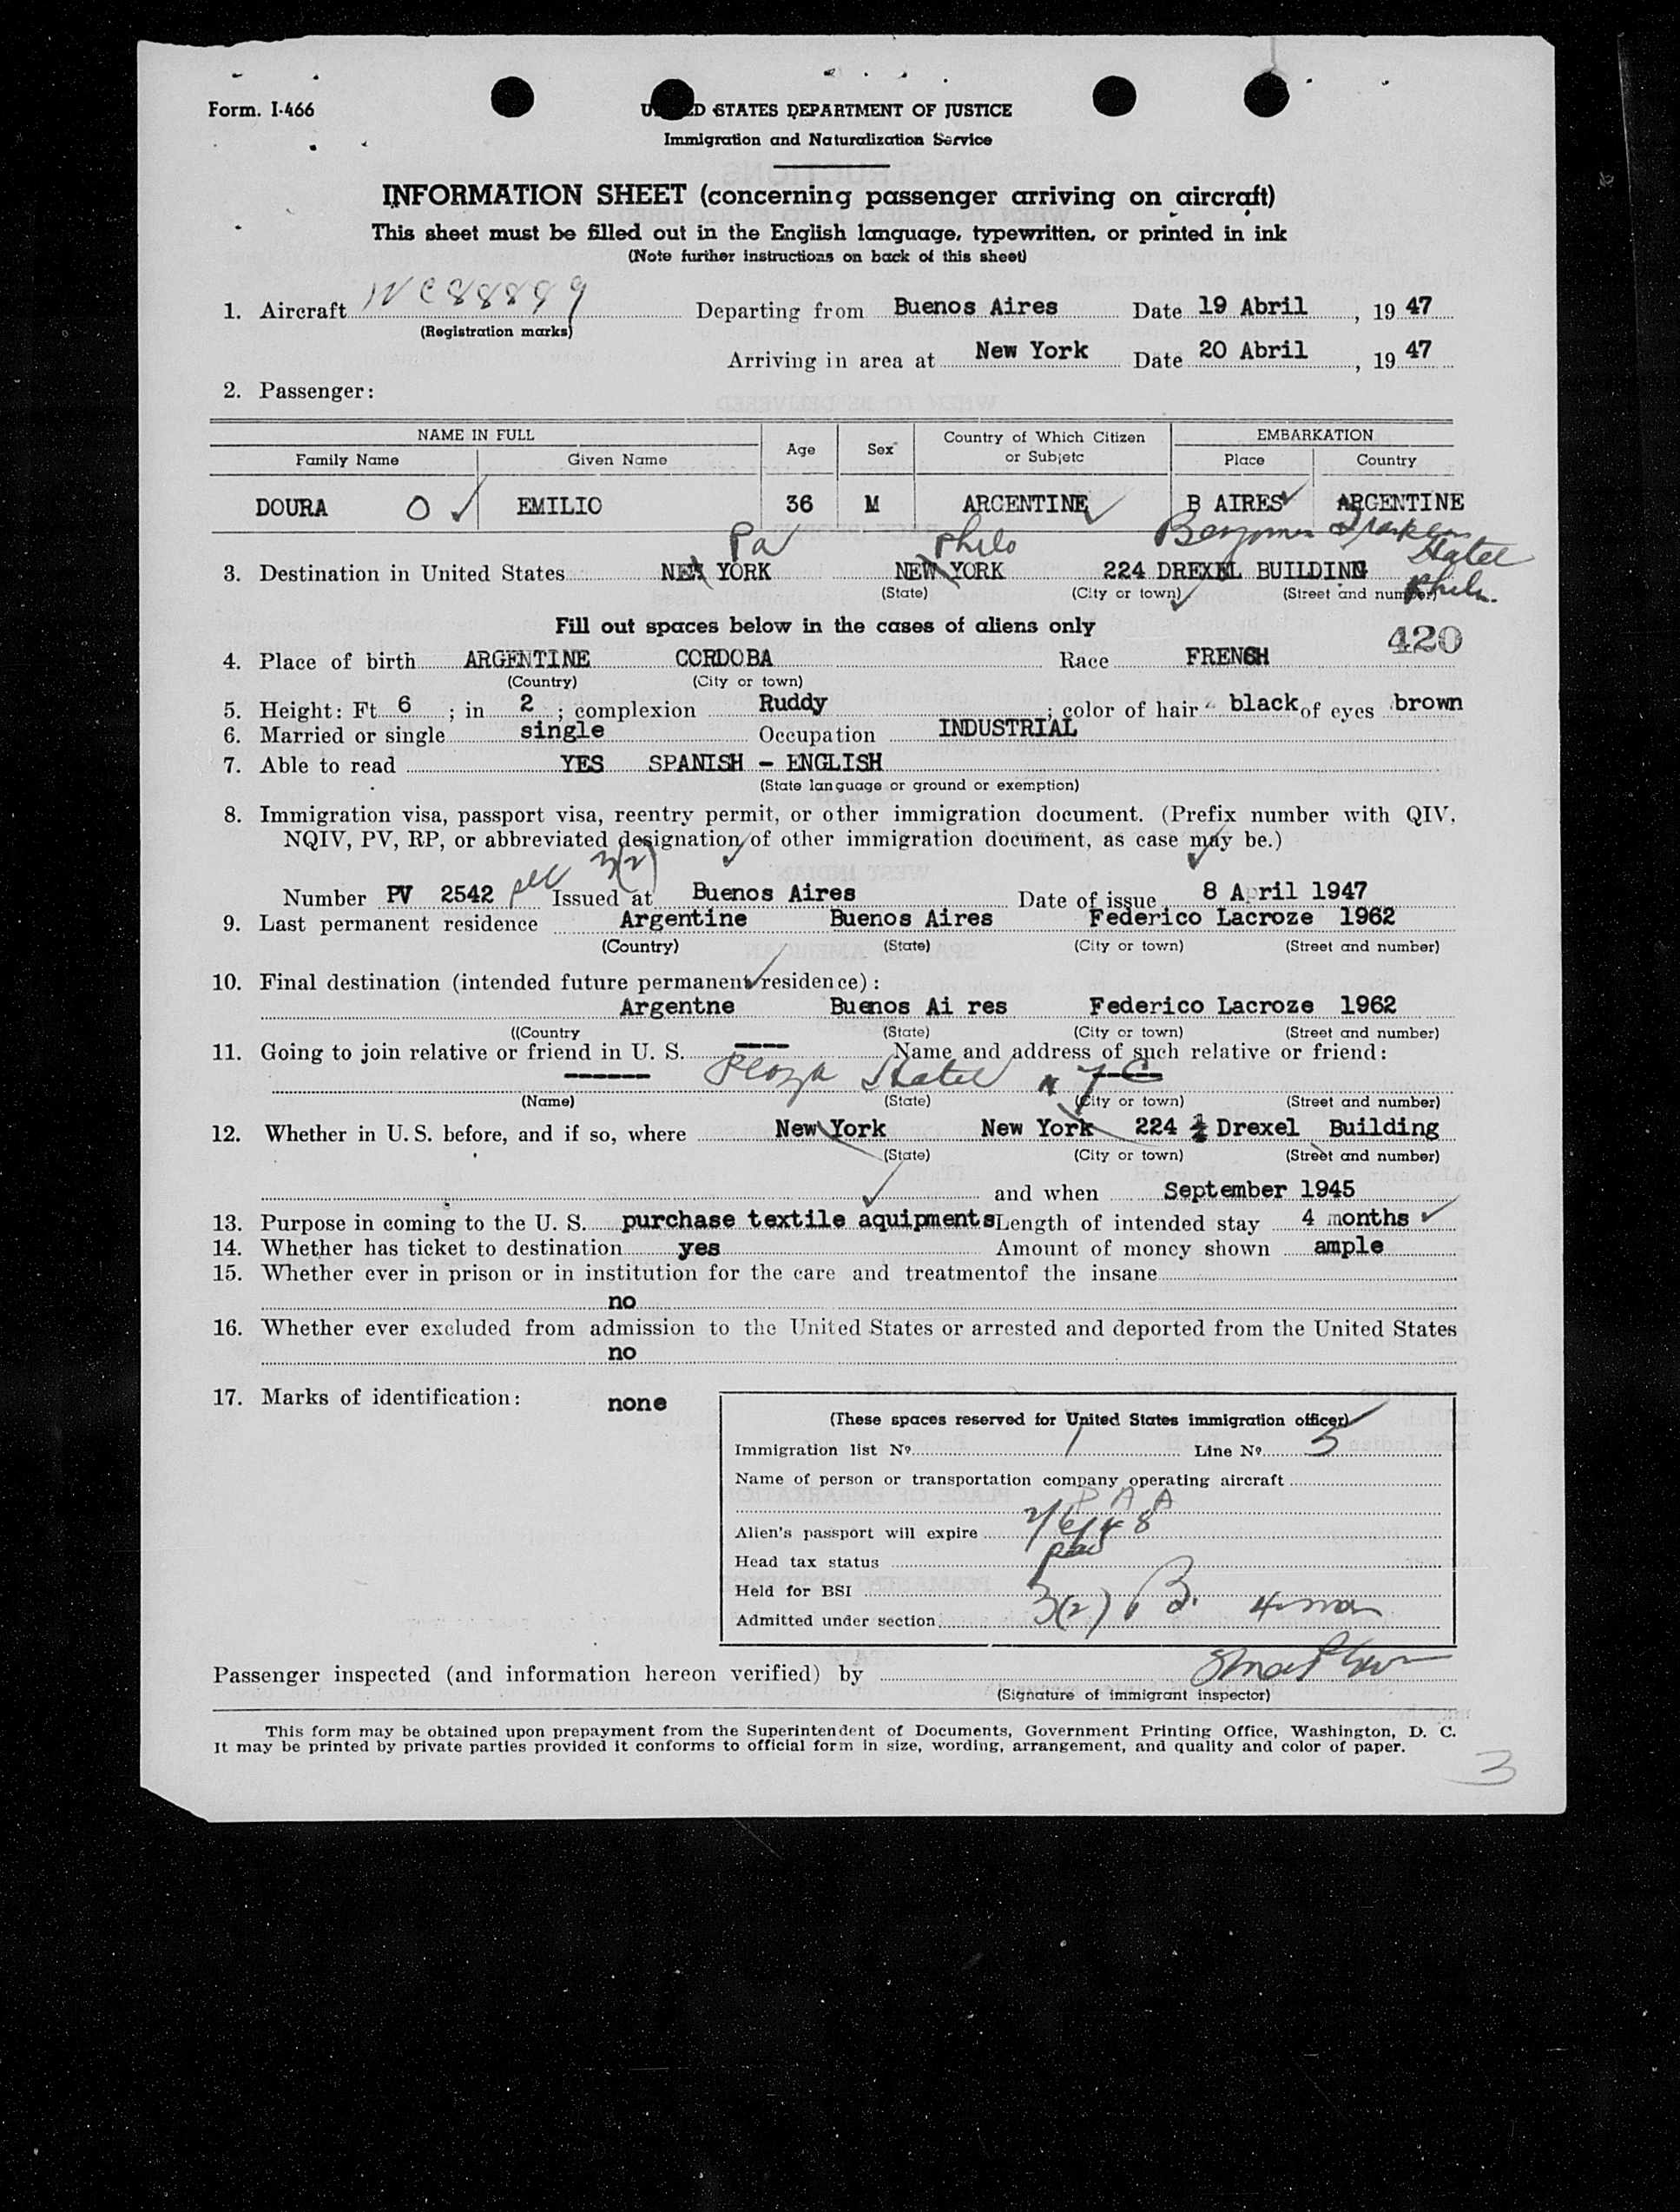 Form. I-466
D STATES DEPARTMENT OF JUSTICE
Immigration and Naturalization Service
INFORMATION SHEET (concerning passenger arriving on aircraft)
This sheet must be filled out in the English language, typewritten, or printed in ink
(Note further instructions on back of this sheet)
1. Aircraft NC88899 Departing from Buenos Aires Date 19 Abril, 19 47
(Registration marks)
Arriving in area at New York Date 20 Abril, 19 47
2. Passenger:
NAME IN FULL Age Sex Country of Which Citizen or Subjetc EMBARKATION
Family Name Given Name Place Country
DOURA O ✓ EMILIO 36 M ARGENTINE ✓ B AIRES ✓ ARGENTINE
Pa Phila Benjamin Franklin Hotel
3. Destination in United States NEW YORK NEW YORK 224 DREXEL BUILDING Phila.
(State) (City or town) (Street and number)
Fill out spaces below in the cases of aliens only
420
4. Place of birth ARGENTINE CORDOBA Race FRENCH
(Country) (City or town)
5. Height: Ft 6; in 2; complexion Ruddy; color of hair black of eyes brown
6. Married or single single Occupation INDUSTRIAL
7. Able to read YES SPANISH - ENGLISH
(State language or ground or exemption)
8. Immigration visa, passport visa, reentry permit, or other immigration document. (Prefix number with QIV,
NQIV, PV, RP, or abbreviated designation of other immigration document, as case may be.)
Number PV 2542 sec 3(2) Issued at Buenos Aires Date of issue 8 April 1947
9. Last permanent residence Argentine Buenos Aires Federico Lacroze 1962
(Country) (State) (City or town) (Street and number)
10. Final destination (intended future permanent residence):
Argentne Buenos Ai res Federico Lacroze 1962
((Country (State) (City or town) (Street and number)
11. Going to join relative or friend in U. S. ---- Name and address of such relative or friend:
------ Plaza Hotel N Y C
(Name) (State) (City or town) (Street and number)
12. Whether in U. S. before, and if so, where New York New York 224 Drexel Building
(State) (City or town) (Street and number)
and when September 1945
13. Purpose in coming to the U. S. purchase textile aquipments Length of intended stay 4 months ✓
14. Whether has ticket to destination yes Amount of money shown ample
15. Whether ever in prison or in institution for the care and treatmentof the insane
no
16. Whether ever excluded from admission to the United States or arrested and deported from the United States
no
17. Marks of identification: none
(These spaces reserved for United States immigration officer)
Immigration list No. 1 Line No. 5
Name of person or transportation company operating aircraft
P A A
Alien's passport will expire 2/6/48
Head tax status
Held for BSI
Admitted under section 3(2) B. 4 mos
Passenger inspected (and information hereon verified) by
(Signature of immigrant inspector)
This form may be obtained upon prepayment from the Superintendent of Documents, Government Printing Office, Washington, D. C.
It may be printed by private parties provided it conforms to official form in size, wording, arrangement, and quality and color of paper.
3